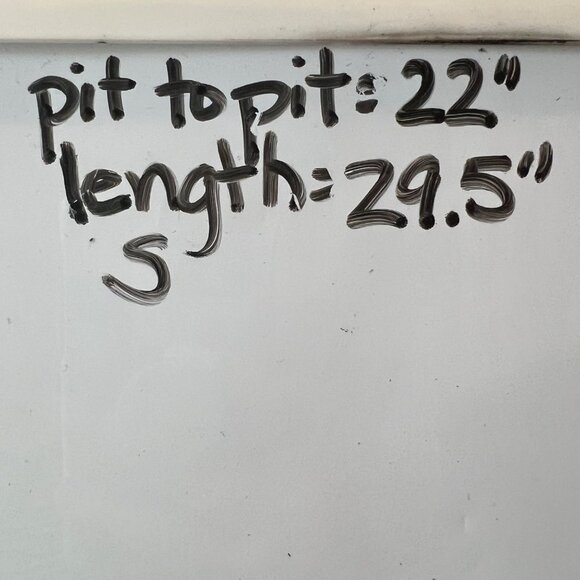 pit to pit: 22"
length: 29.5"
S